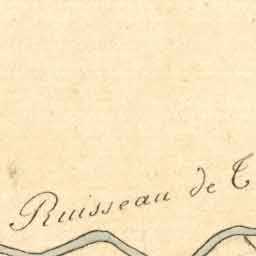 Ruisseau de